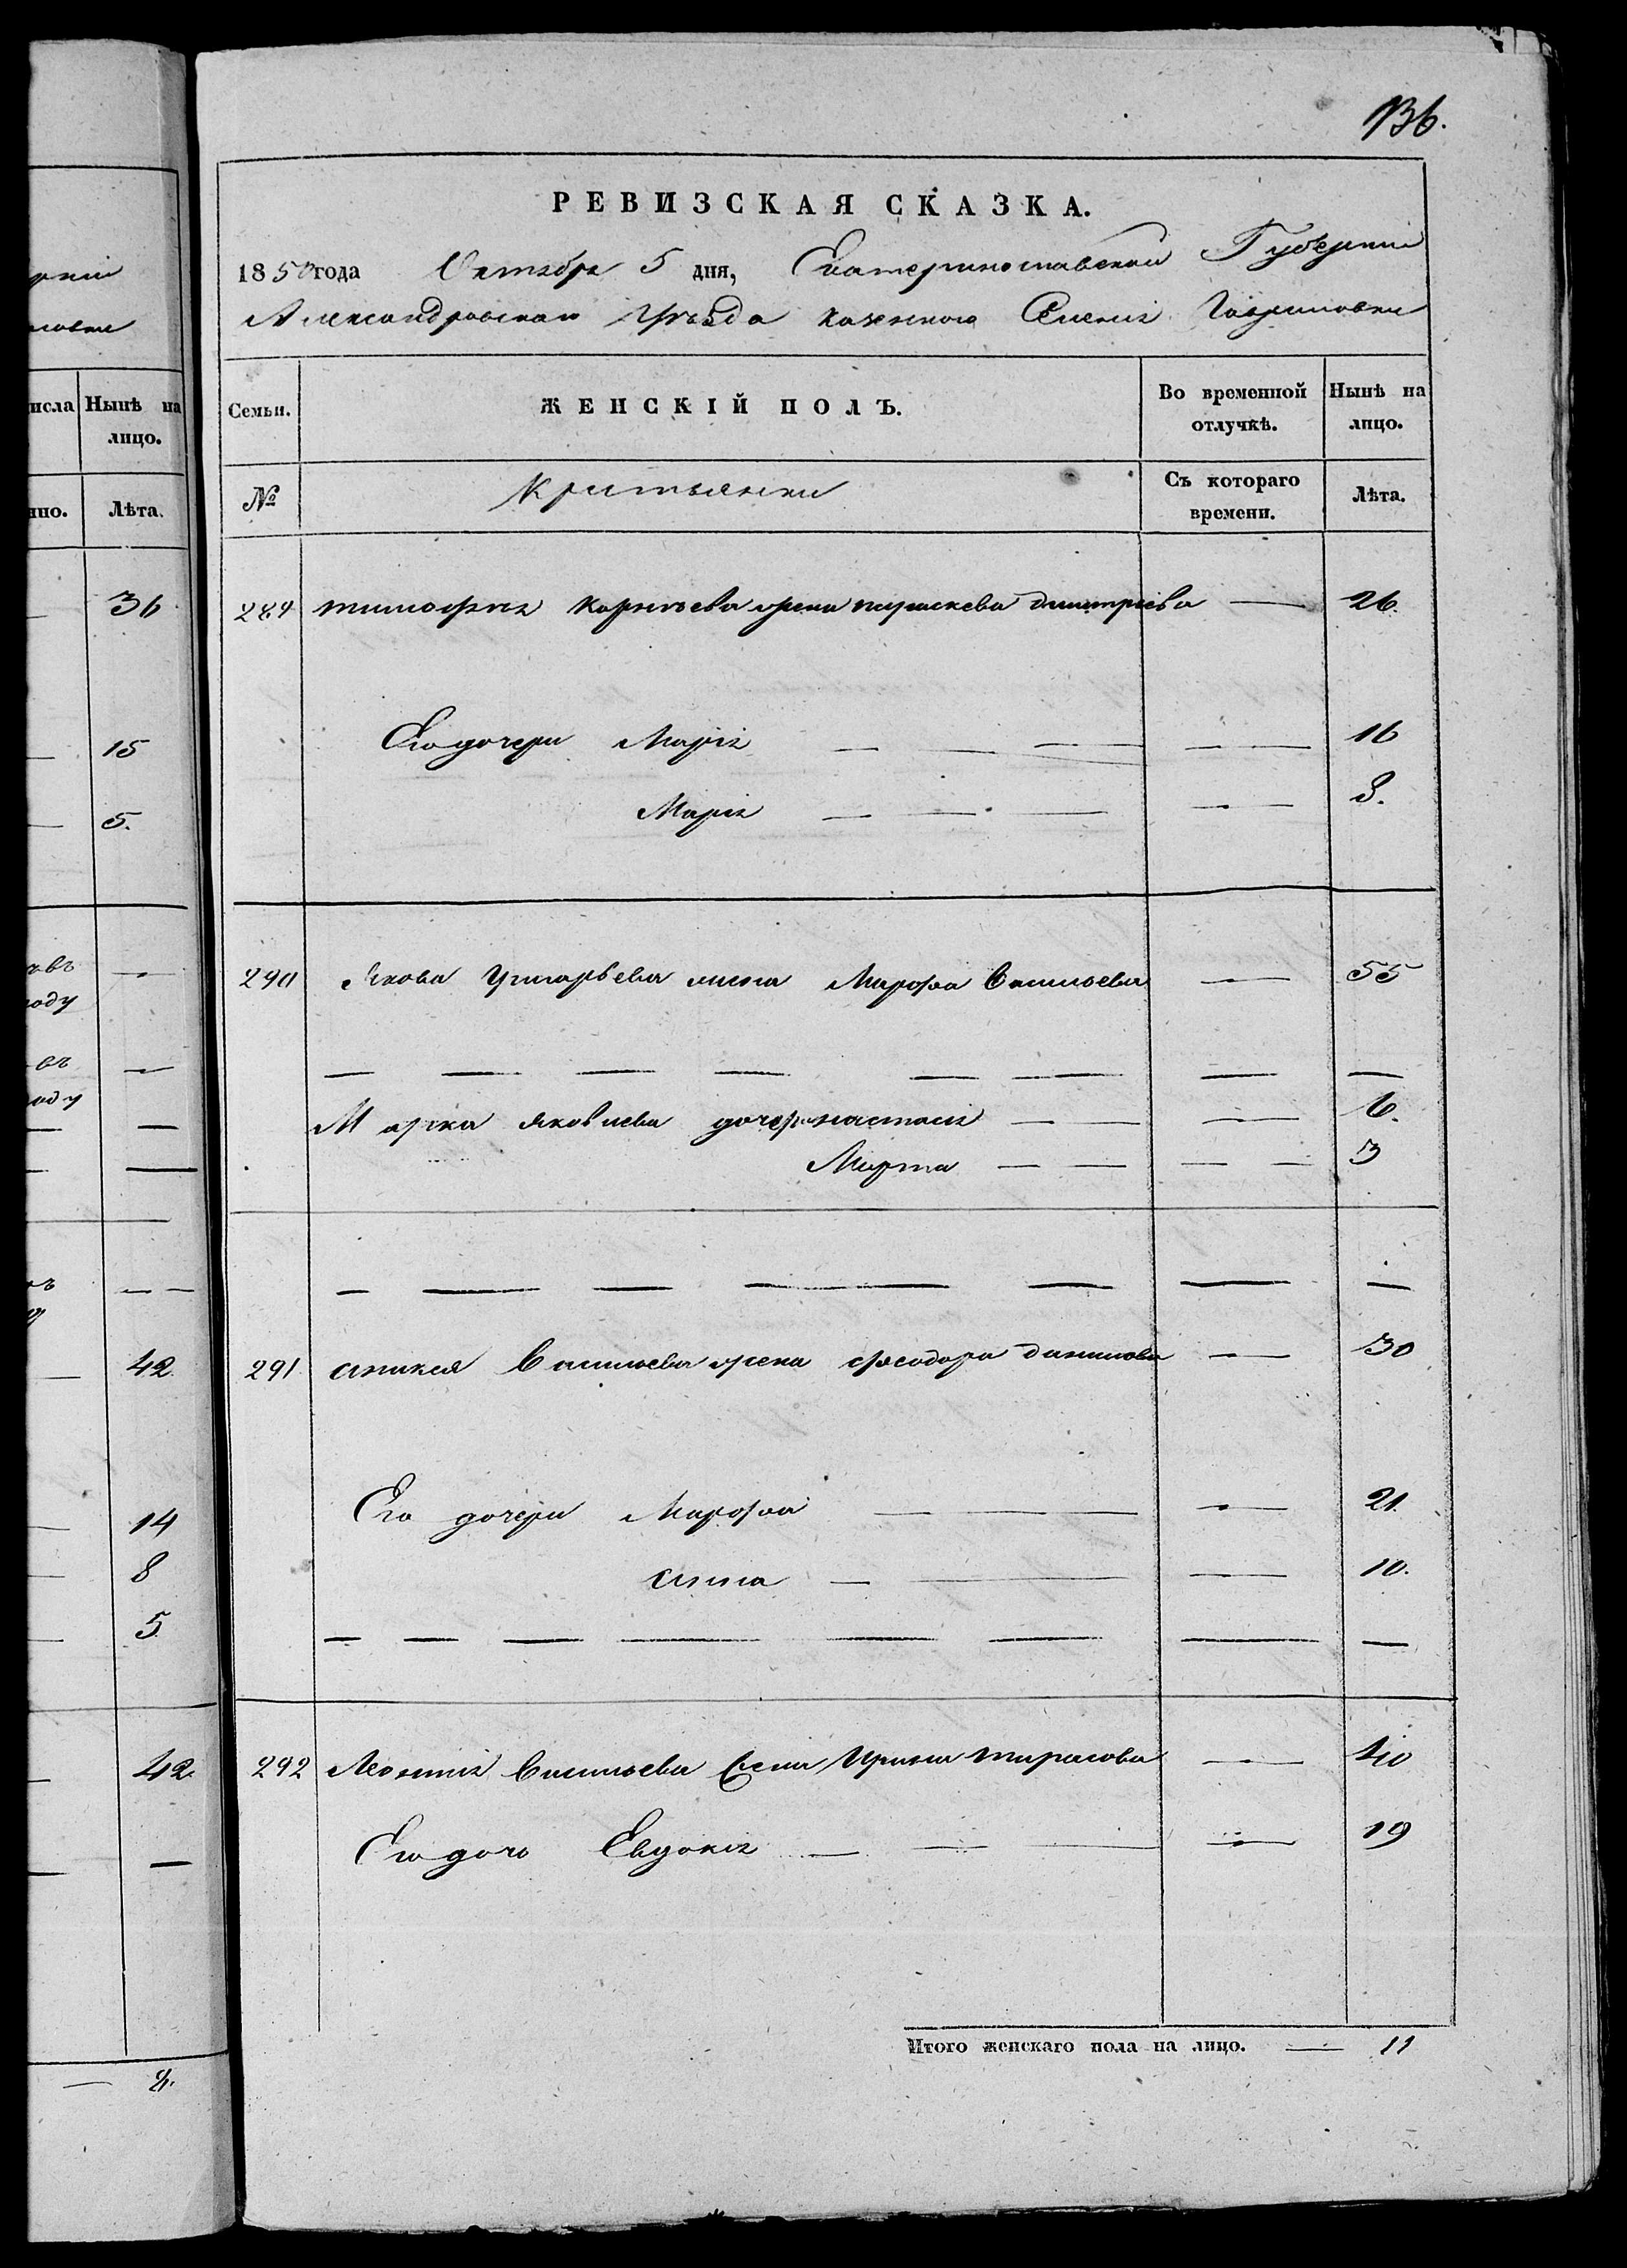 136.
РЕВИЗСКАЯ СКАЗКА.
1850 года Октября 5 дня, Екатеринославской Губерніи
Александровскаго Уѣзда казенного Селенія Гавриловки
Семьи. ЖЕНСКІЙ ПОЛЪ. Во временной отлучкѣ. Нынѣ на лицо.
№ Крестьянки Съ котораго времени. Лѣта.
289 тимофѣя Корнѣева жена параскева дмитріева — 26.
Его дочери Марія — — — — — 16
Марія — — — — — 8.
290 Якова Григорьева жена Марфа Васильева — 55
— — — — — — — —
Марка яковлева дочери настасія — — — 6.
Марта — — — — 3
— — — — — — — —
291 аникея Васильева жена феодора данилова — 30
Его дочери Марфа — — — 21.
анна — — — 10.
— — — — — — — —
292 Леонтія Васильева жена Ирина тарасова — 40
Его дочь Евдокія — — — — 19
Итого женскаго пола на лицо. — 11
рніи
ловки
исла Нынѣ на лицо.
нно. Лѣта.
— 36
— 15
— 5.
оду
въ —
оду
— 42
— 14
— 8
— 5
— 42.
— 8.